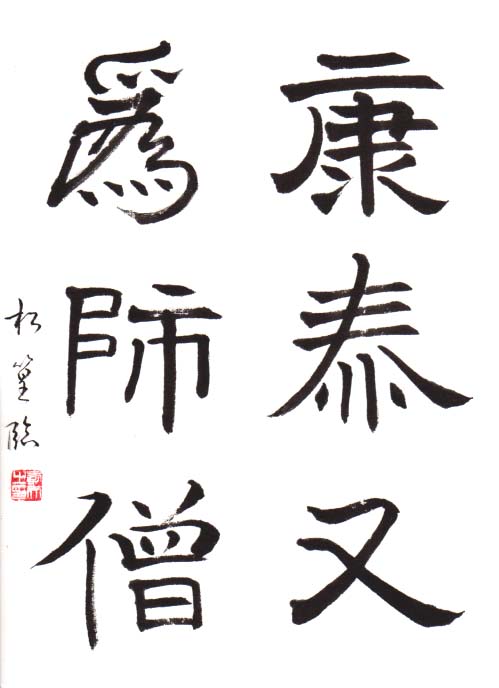 康泰又
爲師僧
松篁臨